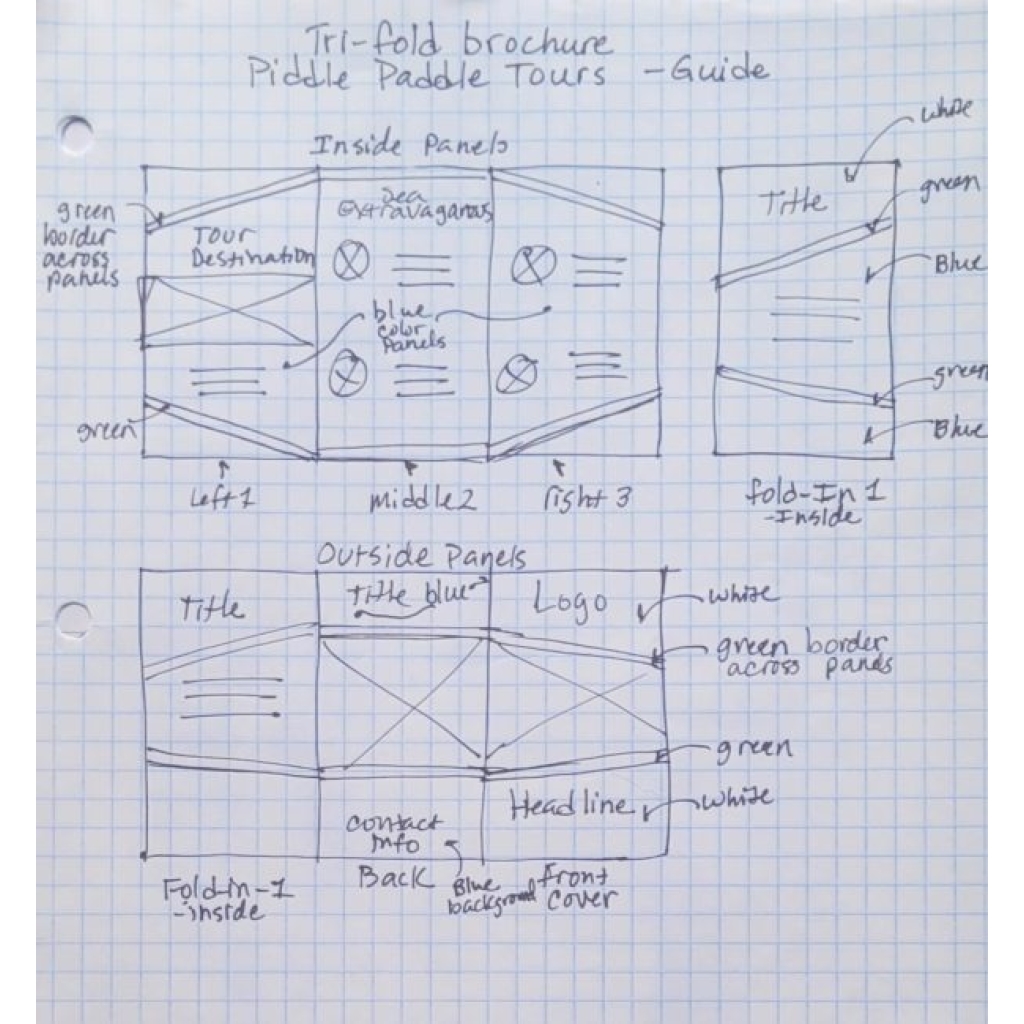 Tri-fold brochure
Piddle Paddle Tours - Guide
Inside Panels
white
Title
green
Blue
green
Blue
fold-In 1
-Inside
green
border
across
panels
Tour
Destination
Sea
Extravaganas
blue
color
Panels
green
Left 1
middle 2
right 3
Outside Panels
Title
Title blue
Logo
white
green border
across panels
green
Headline
white
Contact
Info
Blue
background
Fold-in-1
-inside
Back
Front
Cover